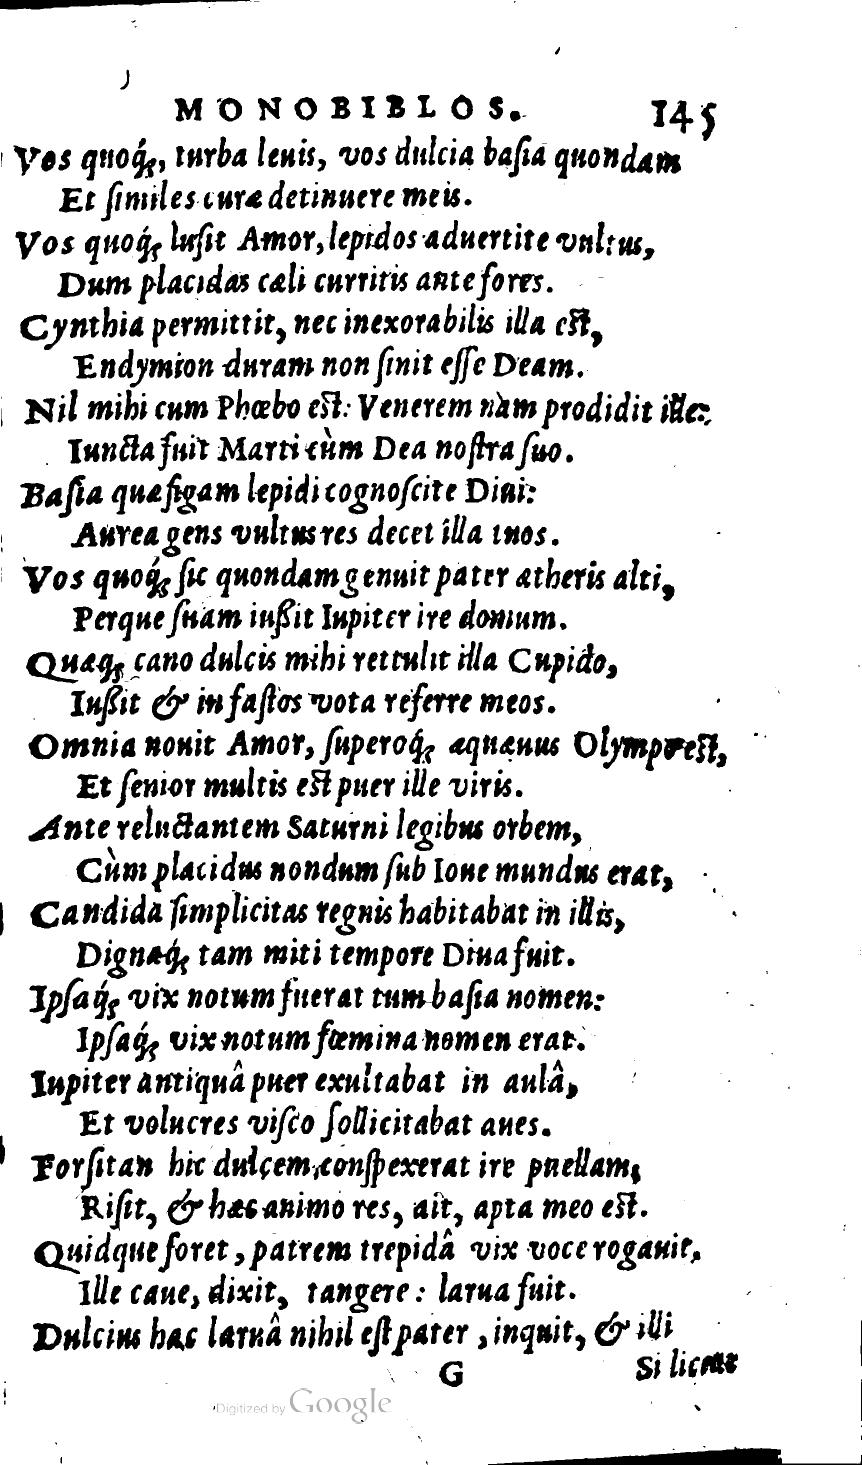 MONOBIBLOS. 145
Vos quoq́;, turba leuis, vos dulcia baſia quondam
Et ſimiles curæ detinuere meis.
Vos quoq́; luſit Amor, lepidos aduertite vultus,
Dum placidas cæli curritis ante fores.
Cynthia permittit, nec inexorabilis illa eſt,
Endymion duram non ſinit eſſe Deam.
Nil mihi cum Phœbo eſt: Venerem nàm prodidit ille:
Iuncta fuit Marti cùm Dea noſtra ſuo.
Baſia quæ figam lepidi cognoſcite Diui:
Aurea gens vultus res decet illa tuos.
Vos quoq́; ſic quondam genuit pater ætheris alti,
Perque ſuam iußit Iupiter ire domum.
Quæq; cano dulcis mihi rettulit illa Cupido,
Iußit & in faſtos vota referre meos.
Omnia nouit Amor, ſuperoq́; æquæuus Olympo eſt,
Et ſenior multis eſt puer ille viris.
Ante reluctantem Saturni legibus orbem,
Cùm placidus nondum ſub Ioue mundus erat,
Candida ſimplicitas regnis habitabat in illis,
Dignaq́; tam miti tempore Diua fuit.
Ipſaq́; vix notum fuerat tum baſia nomen:
Ipſaq́; vix notum fœmina nomen erat.
Iupiter antiquâ puer exultabat in aulâ,
Et volucres viſco ſollicitabat aues.
Forſitan hic dulcem conſpexerat ire puellam,
Riſit, & hæc animo res, ait, apta meo eſt.
Quidque foret, patrem trepidâ vix voce rogauit,
Ille caue, dixit, tangere: larua fuit.
Dulcius hac laruâ nihil eſt pater, inquit, & illi
G Si liceat
Digitized by Google